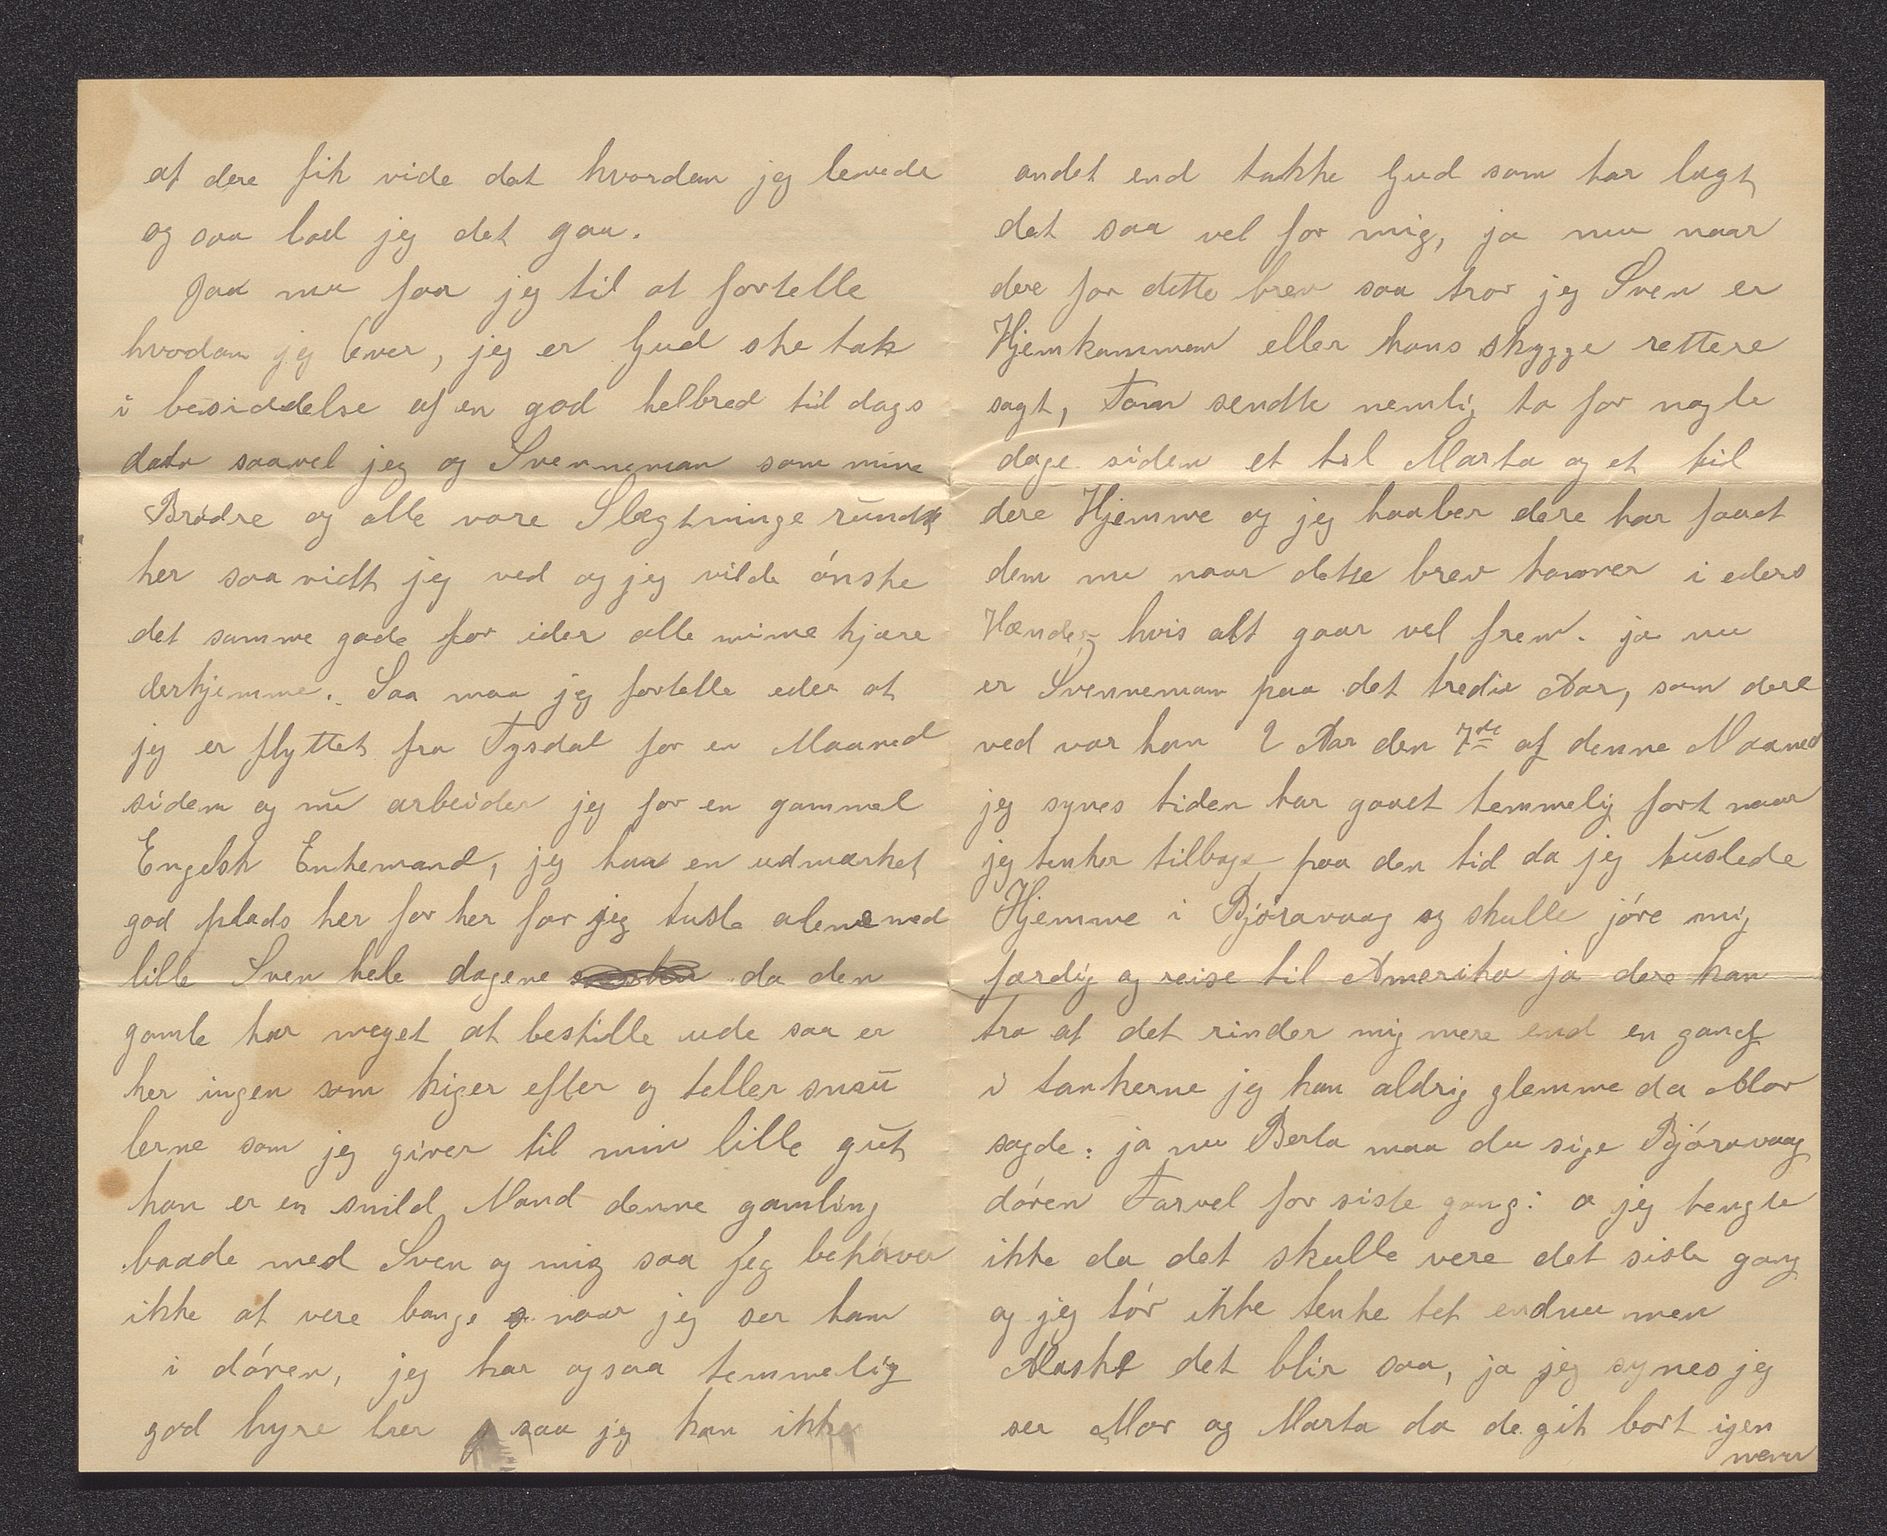 at dere fik vide det hvordan jeg levede
og saa lod jeg det gaa.
Jaa nu faar jeg til at fortelle
hvodan jeg lever, jeg er Gud ske tak
i besiddelse af en god helbred til dags
dato saavel jeg og Svenneman som mine
Brødre og alle vore Slægtninge rundt
her saa vidt jeg ved og jeg vilde ónske
det samme gode for ider alle mine kjære
derhjemme. Saa maa jeg fortelle eder at
jeg er flyttet fra Tysdal for en Maaned
siden og nu arbeider jeg for en gammel
Engelsk Enkemand, jeg har en udmærket
god plads her for her faar jeg tusle alene med
lille Sven hele dagene da den
gamle har meget at bestille ude saa er
her ingen som kiger efter og teller smu
lerne som jeg giver til min lille gut
han er en snild Mand denne gamling
baade med Sven og mig saa jeg behóver
ikke at vere bange naar jeg ser ham
i dóren, jeg har ogsaa temmelig
god hyre her saa jeg kan ikke
andet end takke Gud som har lagt
det saa vel for mig, ja nu naar
dere for dette brev saa tror jeg Sven er
Hjemkommen eller hans skygge rettere
sagt, Tom sendte nemlig to for nogle
dage siden et til Marta og et til
dere Hjemme og jeg haaber dere har faaet
dem nu naar dette brev kommer i eders
Hænder hvis alt gaar vel frem. ja nu
er Svenneman paa det tredie Aar, som dere
ved var han 2 Aar den 7de af denne Maaned
jeg synes tiden har gaaet temmelig fort naar
jeg tenker tilbage paa den tid da jeg tuslede
Hjemme i Bjóravaag og skulle jóre mig
færdig og reise til Amerika ja dere kan
tro at det rinder mig mere end en gang
i tankerne jeg kan aldrig glemme da Mor
sagde: ja nu Berta maa du sige Bjóravaag
dóren Farvel for siste gang: o jeg tengte
ikke da det skulle vere det siste gang
og jeg tór ikke tenke tet endnu men
Maske det blir saa, ja jeg synes jeg
ser Mor og Marta da de gik bort igen